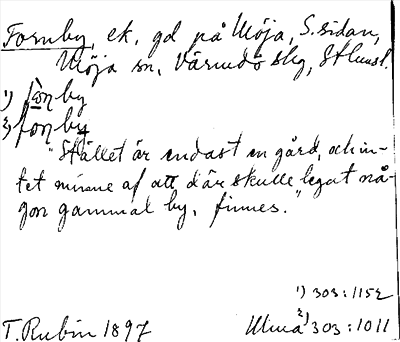 Fornby, ek, gd på Möja, S. sidan,
Möja sn, Värmdö skg, Sthmsl.
1) fo̱nby
2) fonby
"Stället är endast en gård, och in-
tet minne af att där skulle legat nå-
gon gammal by, finnes."
1) 303:1152
T. Rubin 1897
2) 303:1011